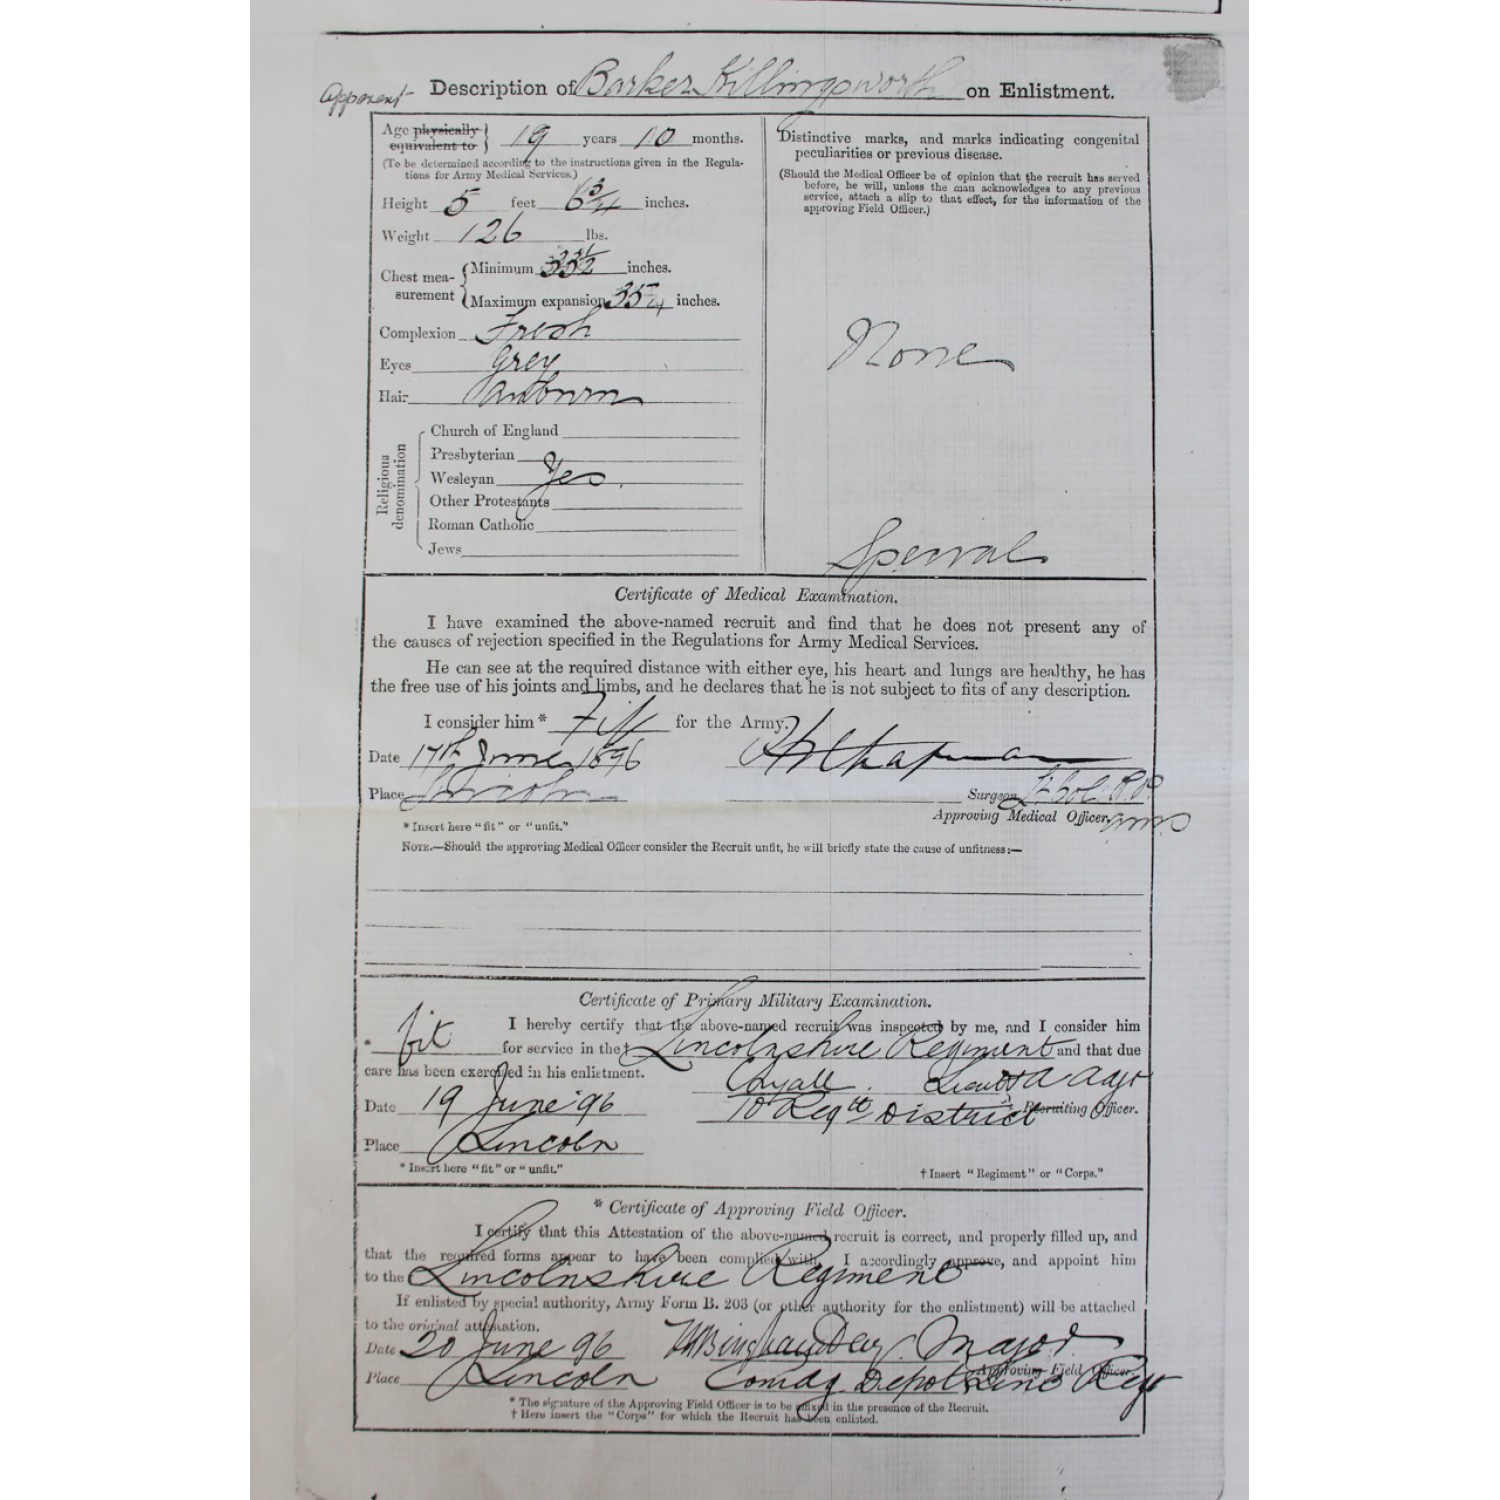 Apparent
Description of Barker Killingsworth on Enlistment.
Age physically equivalent to } 19 years 10 months.
(To be determined according to the instructions given in the Regula-
tions for Army Medical Services.)
Height 5 feet 6 3/4 inches.
Weight 126 lbs.
Chest mea-
surement
Minimum 33 1/2 inches.
Maximum expansion 35 inches.
Complexion Fresh
Eyes Grey
Hair Auburn
Religious denomination
Church of England
Presbyterian
Wesleyan Yes.
Other Protestants
Roman Catholic
Jews
Distinctive marks, and marks indicating congenital
peculiarities or previous disease.
(Should the Medical Officer be of opinion that the recruit has served
before, he will, unless the man acknowledges to any previous
service, attach a slip to that effect, for the information of the
approving Field Officer.)
None
Certificate of Medical Examination.
I have examined the above-named recruit and find that he does not present any of
the causes of rejection specified in the Regulations for Army Medical Services.
He can see at the required distance with either eye, his heart and lungs are healthy, he has
the free use of his joints and limbs, and he declares that he is not subject to fits of any description.
I consider him * Fit for the Army.
Date 17th June 1896 Chapman
Place Lincoln Surgeon Lt Col.
Approving Medical Officer.
* Insert here "fit" or "unfit."
NOTE.—Should the approving Medical Officer consider the Recruit unfit, he will briefly state the cause of unfitness:—
Certificate of Primary Military Examination.
I hereby certify that the above-named recruit was inspected by me, and I consider him
* fit for service in the † Lincolnshire Regiment and that due
care has been exercised in his enlistment.
Date 19 June '96 10 Regtl District Recruiting Officer.
Place Lincoln
* Insert here "fit" or "unfit."
† Insert "Regiment" or "Corps."
* Certificate of Approving Field Officer.
I certify that this Attestation of the above-named recruit is correct, and properly filled up, and
that the required forms appear to have been complied with. I accordingly approve, and appoint him
to the Lincolnshire Regiment
If enlisted by special authority, Army Form B. 203 (or other authority for the enlistment) will be attached
to the original attestation.
Date 20 June 96 Bingham Day Major
Approving Field Officer.
Place Lincoln Comdg Depot Linc Regt
* The signature of the Approving Field Officer is to be affixed in the presence of the Recruit.
† Here insert the "Corps" for which the Recruit has been enlisted.